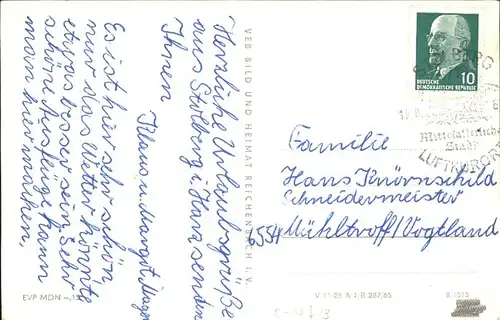 Herzliche Urlaubsgrüße
aus Stolberg i. Harz senden
Ihnen
Klaus u. Margot
Es ist hier sehr schön
nur das Wetter könnte
etwas besser sein. Sehr
schöne Ausflüge kann
man hier machen.
EVP MDN -,15
VEB BILD UND HEIMAT REICHENBACH I. V.
10
DEUTSCHE
DEMOKRATISCHE REPUBLIK
Mittelalterliche
Stadt
LUFTKURORT
Familie
Hans Knörnschild
Schneidermeister
6554
Mühltroff/Vogtland
V 11 28 A 1 B 287/65
B 1515